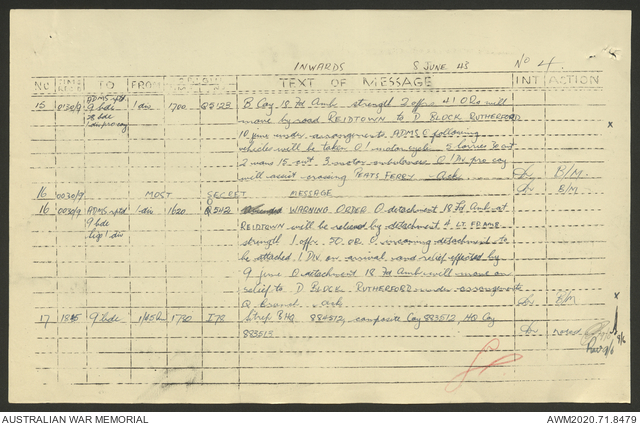 INWARDS 8 JUNE 43 No 4.
NO TIME TO FROM TEXT OF MESSAGE INT ACTION
15 0130/9 ADMS 9 bde 1 div 1700 B Coy 18 Fd Amb strength 2 offrs 41 ORs will
move by road REIDTOWN to D BLOCK RUTHERFORD
10 June under arrangements ADMS following
vehicles will be taken 1 motor cycle 5 lorries 30 cwt
2 vans 15 cwt 3 motor ambulances 1 Div pro coy
will assist crossing PEATS FERRY - Ack B/M.
16 0030/9 MOST SECRET MESSAGE B/M
16 0030/9 ADMS 9 bde 1 div 1620 WARNING ORDER O detachment 18 Fd Amb at
REIDTOWN will be relieved by detachment 4 LT FD AMB
strength 1 offr 20 OR incoming detachment to
be attached 1 Div on arrival and relief effected by
9 June O detachment 18 Fd Amb will move on
relief to D BLOCK RUTHERFORD under
Q Ack B/M
17 9 bde 1730 I78 BHQ 884512, composite Coy 883512, HQ Coy
883513 noted
9/6
AUSTRALIAN WAR MEMORIAL AWM2020.71.8479